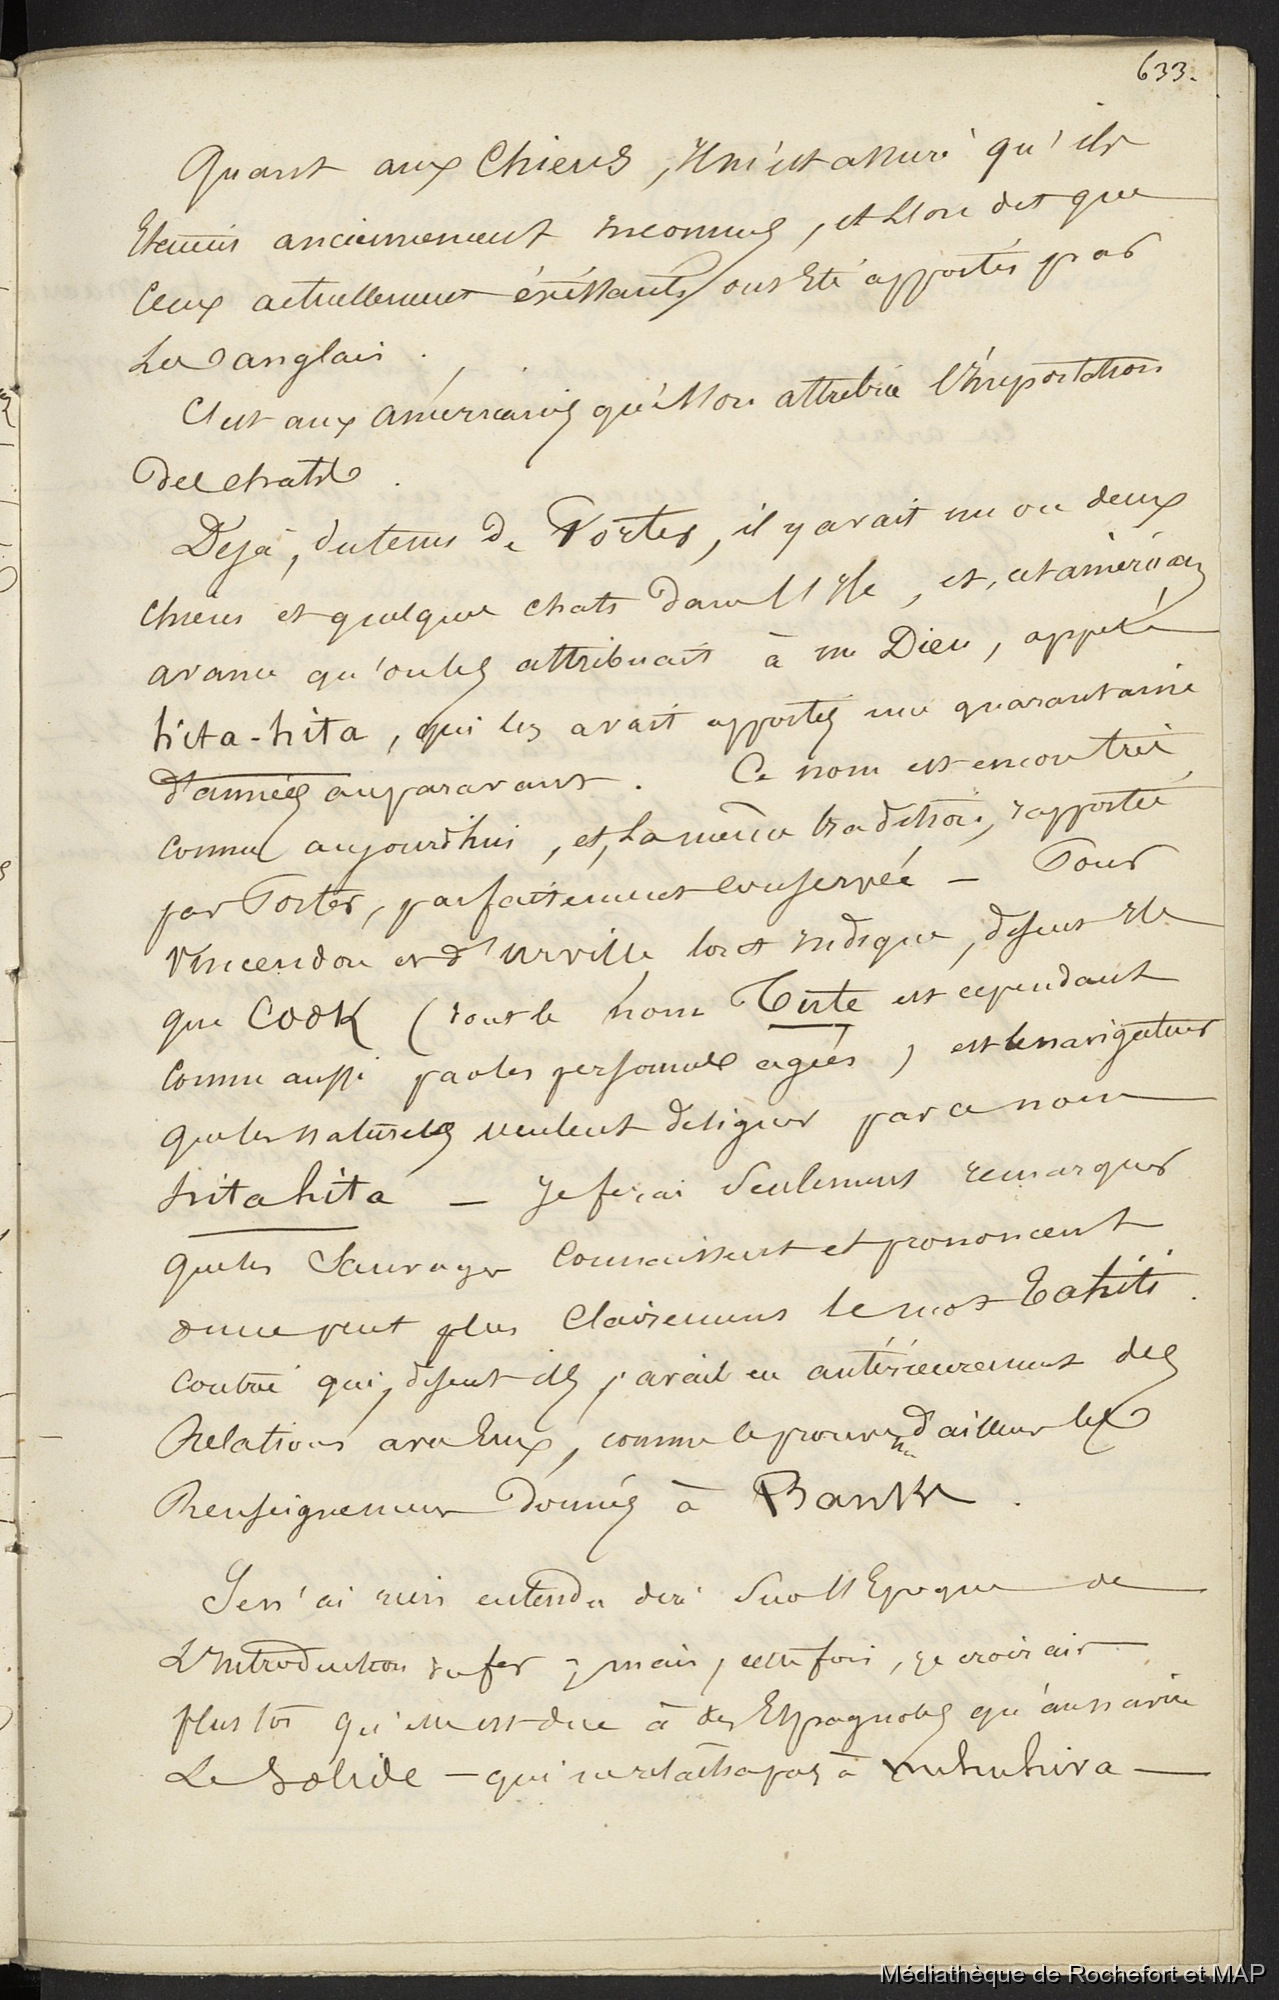 633.
Quant aux Chiens, Il m'est assuré qu'ils
Etaient anciennement Inconnus, et l'on dit que
Ceux actuellement éxistants ont Eté apportés par
Les anglais.
C'est aux américains qu'el'on attribue l'Importation
des chats.
Déja, du tems de Porter, il y avait un ou deux
chiens et quelques chats dans l'Ile, et, cet américain
avance qu'on les attribuait à un Dieu, appelé
hita-hita, qui les avait apportés une quarantaine
d'années auparavant. Ce nom est encore très
connu aujourdhui, et, la même tradition, rapportée
par Porter, parfaitement conservée — Pour
Vincendon et d'urville tout Indique, disent Ils
que COOK (dont le nom Tute est cependant
connu aussi par les personnes agées, est le navigateur
que les naturels veulent désigner par ce nom
hitahita — Je ferai seulement remarquer
que les Sauvages connaissent et prononcent
on ne peut plus clairement le mot Tahiti
contrée qui, disent ils, avait eu antérieurement des
Relations avec Eux, comme le prouvent d'ailleurs les
Renseignemens donnés à Banks.
Je n'ai rien entendu dire sur l'Epoque de
L'Introduction du fer ; mais, cette fois, je croirais
plustôt qu'elle est due à des Espagnols qu'au navire
Le Solide — qui ne relâcha pas à nuhuhiva —
Médiathèque de Rochefort et MAP